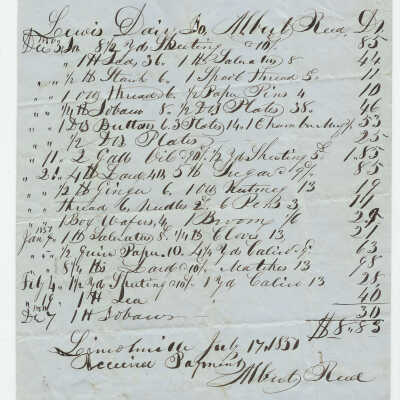 Lewis Dair To Albert Reed Dr
Dec 3 To 8 1/2 yds Sheeting 10 85
" " 1 lb Tea 36. 1 lb Salaratus 8 44
" " 1/2 lb Starch 6 1 Spool Thread 5 11
" " 1 oz thread 6 1/2 Paper Pins 4 10
" " 1/4 lb Tobacco 8 1/2 Doz Plates 38 46
" " 1 Doz Buttons 6. 3 Plates 14. 1 Chamber 53
" " 1/2 Doz Plates 25
" 11 2 Galls Oil 1/2 yd Sheeting 5 1.85
" 21 4 lb Lard 5 lb Sugar 85
" " 1/2 lb Ginger 6 1 oz Nutmeg 13 19
" " thread 6 needles 2 6 Pens 3 11
" " 1 Box Wafers 4 1 Broom 29
Jan 7 1 lb Salaratus 8 1/4 lb Cloves 13 21
" " 1/2 Quire Paper 10 4 1/4 yds Calico 63
" " 8 1/4 lbs Lard Matches 13 98
Feb 4 1 1/2 yd Sheeting 1 yd Calico 13 28
" 19 1 lb Tea 40
Dec 7 1 lb Tobacco 30
$8.83
Lincolnville July 17, 1851
Received Payment
Albert Reed